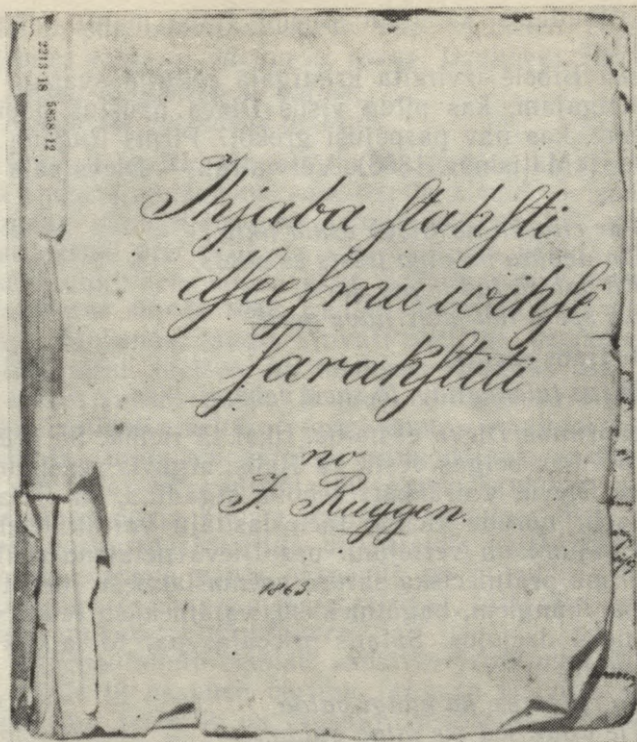 2213-18 5858-12
Ihjaba ſtahſti
dſeeſmu wihſê
ſarakſtiti
no
J. Ruggen.
1863.